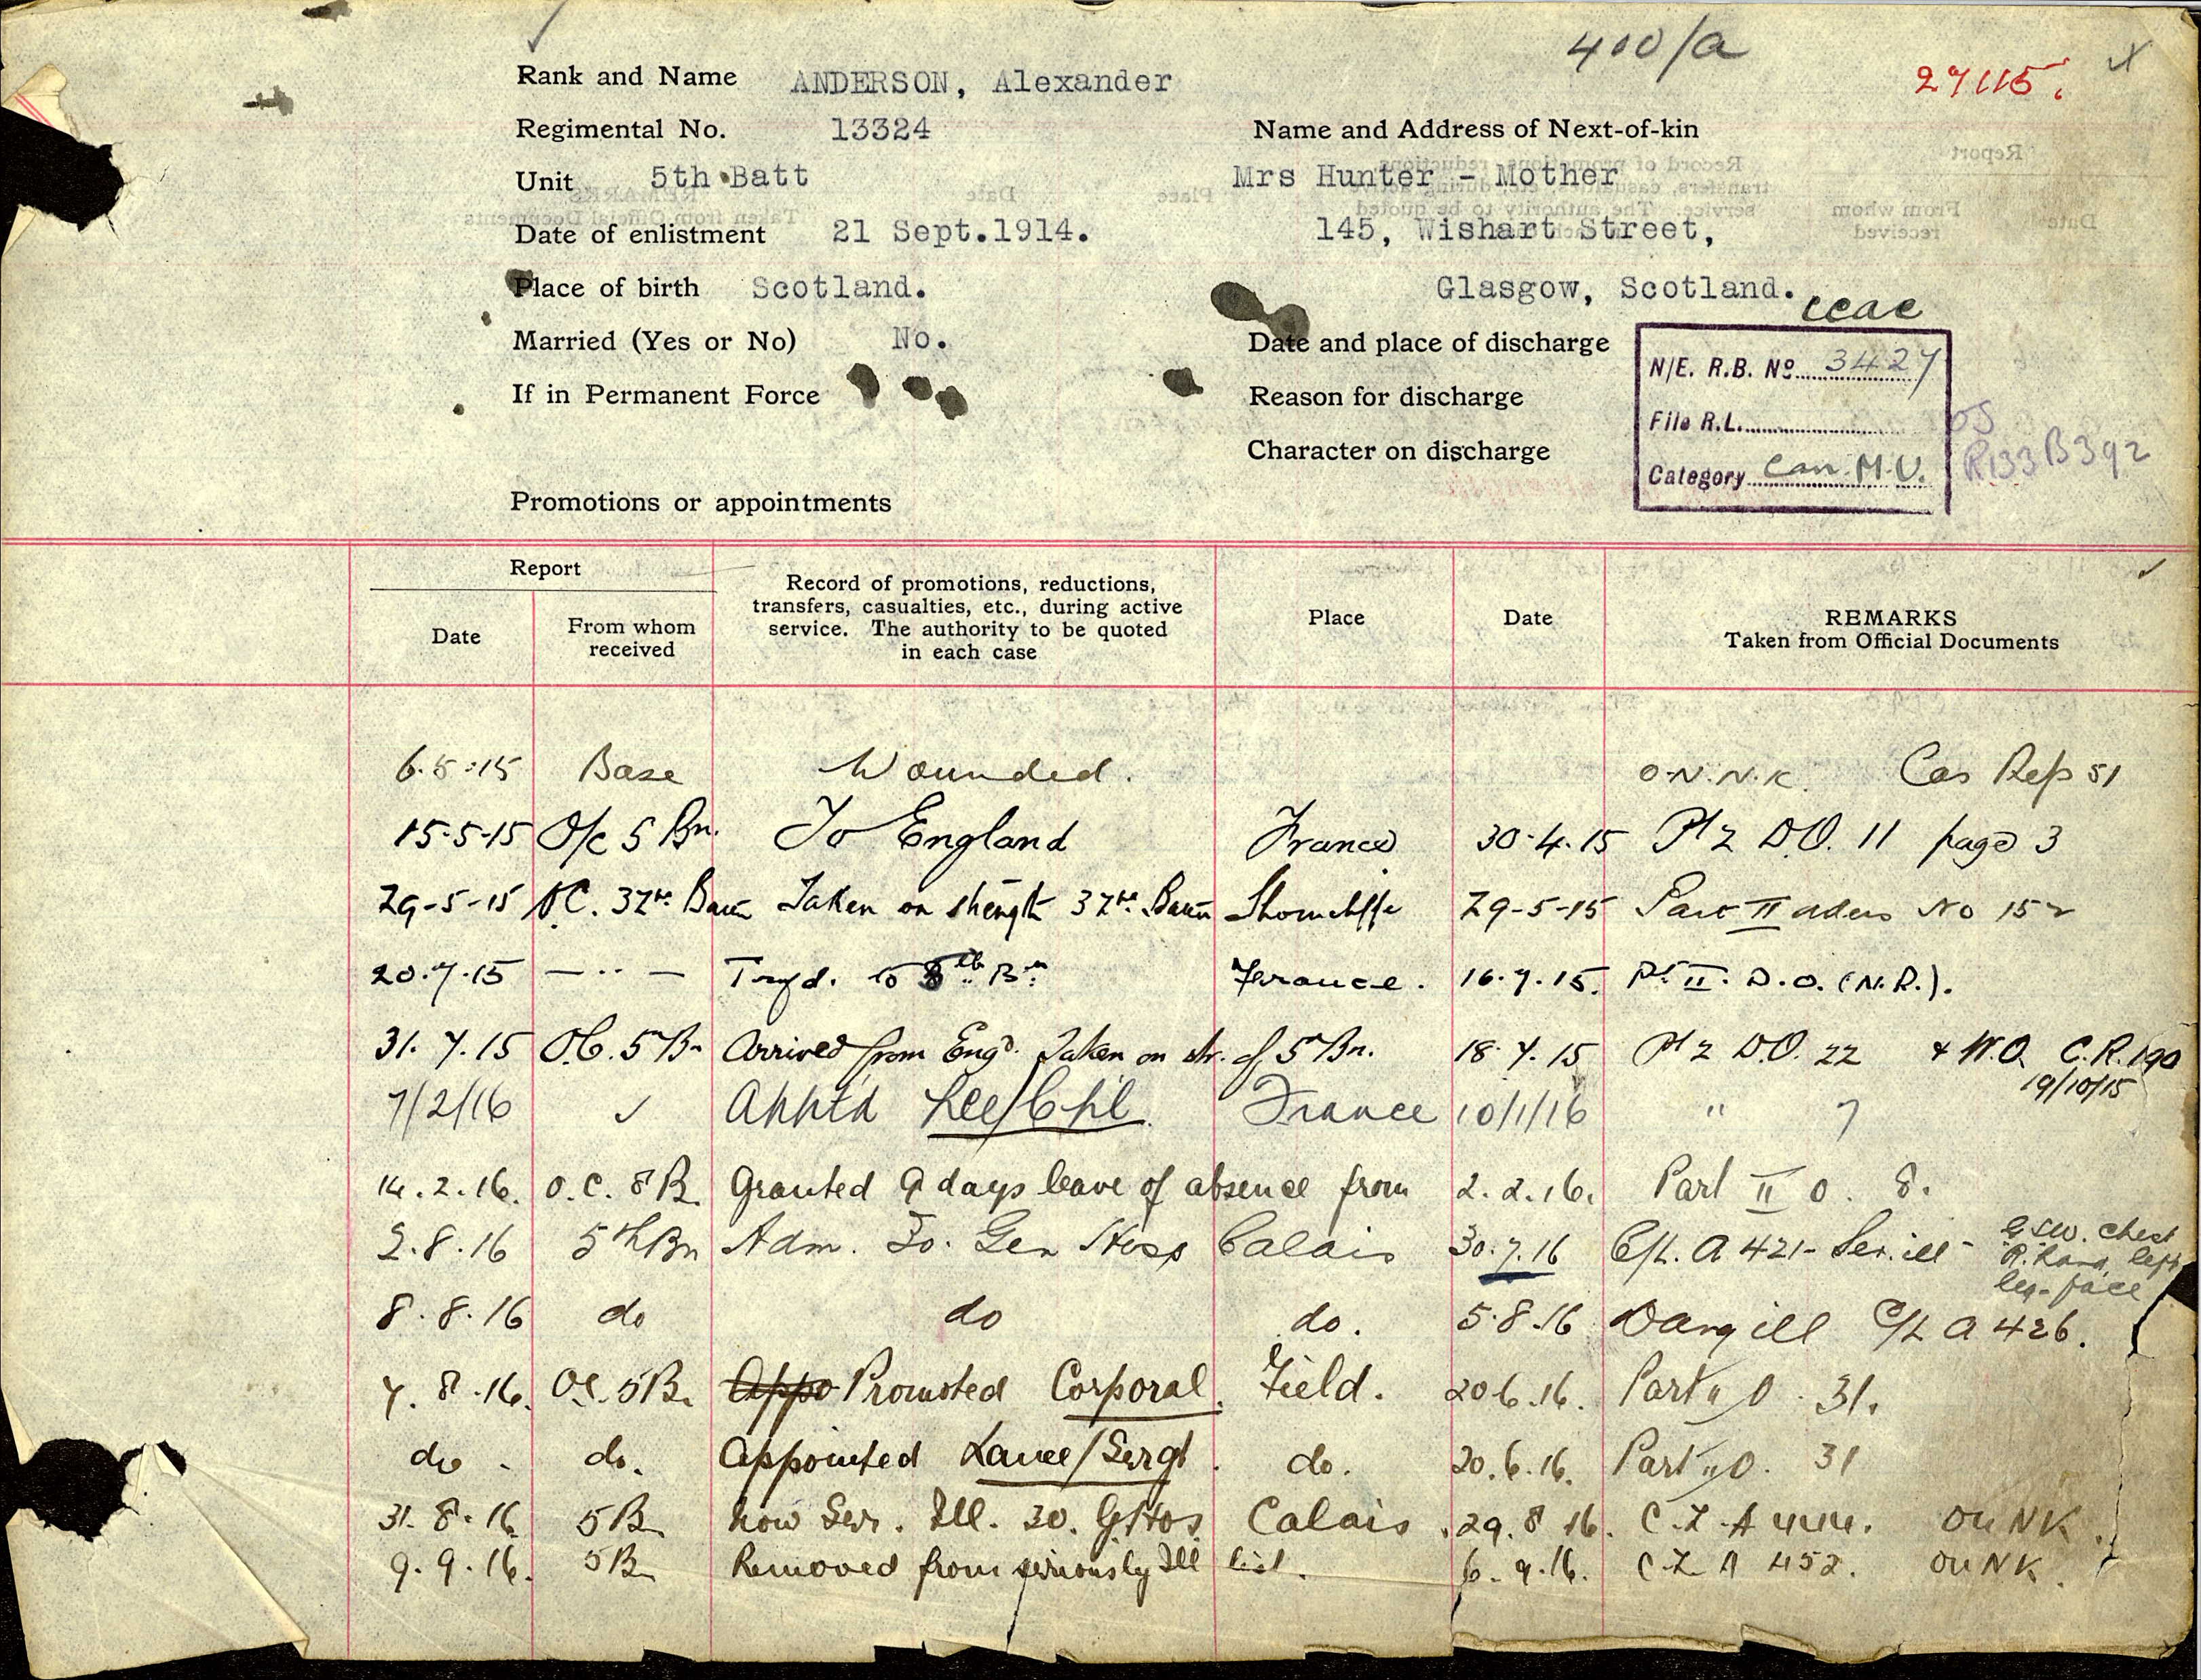 400/a
27115.
Rank and Name ANDERSON, Alexander
Regimental No. 13324
Name and Address of Next-of-kin
Unit 5th Batt
Mrs Hunter - Mother
Date of enlistment 21 Sept.1914.
145, Wishart Street,
Place of birth Scotland.
Glasgow, Scotland.
ccac
Married (Yes or No) No.
Date and place of discharge
N/E. R.B. No 3427
If in Permanent Force
Reason for discharge
File R.L.
Character on discharge
Category Can. M.U.
R133 B392
Promotions or appointments
Report
Date
From whom received
Record of promotions, reductions,
transfers, casualties, etc., during active
service. The authority to be quoted
in each case
Place
Date
REMARKS
Taken from Official Documents
6.5.15 Base Wounded. O.N.N.K. Cas Rep 51
15-5-15 O/c 5 Bn. To England France 30-4-15 Pt 2 D.O. 11 page 3
29-5-15 OC. 32nd Battn Taken on strength 32nd Battn Shorncliffe 29-5-15 Part II orders No 152
20.7.15 — " — Trsfd. to 5th Bn France. 16.7.15. Pt II. D.O. (N.R.).
31.7.15 O.C. 5 Bn Arrived from Engd. Taken on str. of 5 Bn. 18.7.15 Pt 2 D.O. 22 & W.O. C.R. 190
19/10/15
7/2/16 ✓ Appt'd Lce/Cpl. France 10/1/16 " 7
14.2.16. O.C. 8 B. Granted 9 days leave of absence from 2.2.16. Part II O. 8.
2.8.16 5th Bn Adm. 30. Gen Hosp Calais 30.7.16 C/L. A 421 - Ser. ill - G.S.W. Chest
R. Hand, left
leg-face
8.8.16 do do do. 5.8.16 Dang ill C/L A 426.
7.8.16. OC. 5B. Appo Promoted Corporal. Field. 20.6.16. Part " O. 31.
do. do. Appointed Lance/Sergt. do. 20.6.16. Part " O. 31
31.8.16 5B. now Ser. Ill. 30. G Hos Calais. 29.8.16. C.L. A 444. OUNK.
9.9.16. 5B. Removed from seriously Ill list. 6.9.16. C.L. A 452. OUNK.